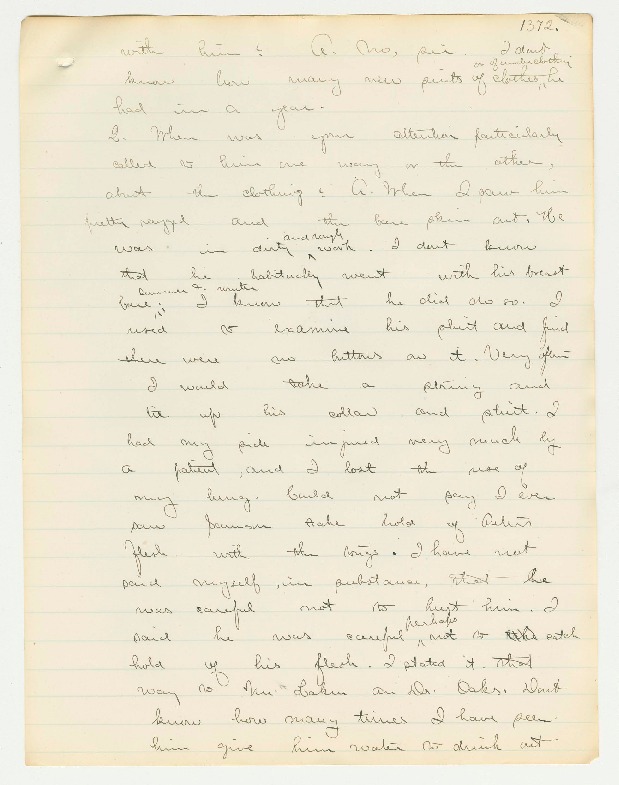 1372.
with him? A. No, sir. I dont
or of underclothing
know how many new suits of clothes, he
had in a year.
Q. When was your attention particularly
called to him one way or the other,
about the clothing? A. When I saw him
pretty ragged and the bare skin out. He
and rough
was in dirty work. I dont know
that he habitually went with his breast
summer & winter
bare; I know that he did do so. I
used to examine his shirt and find
there were no buttons on it. Very often
I would take a string and
tie up his collar and shirt. I
had my side injured very much by
a patient, and I lost the use of
my lung. Could not say I ever
saw take hold of
flesh with the tongs. I have not
said myself, in substance, that he
was careful not to hurt him. I
perhaps
said he was careful not to catch
hold of his flesh. I stated it that
way to Mr. Lakin an Dr. Oaks. Dont
know how many times I have seen
him give him water to drink out